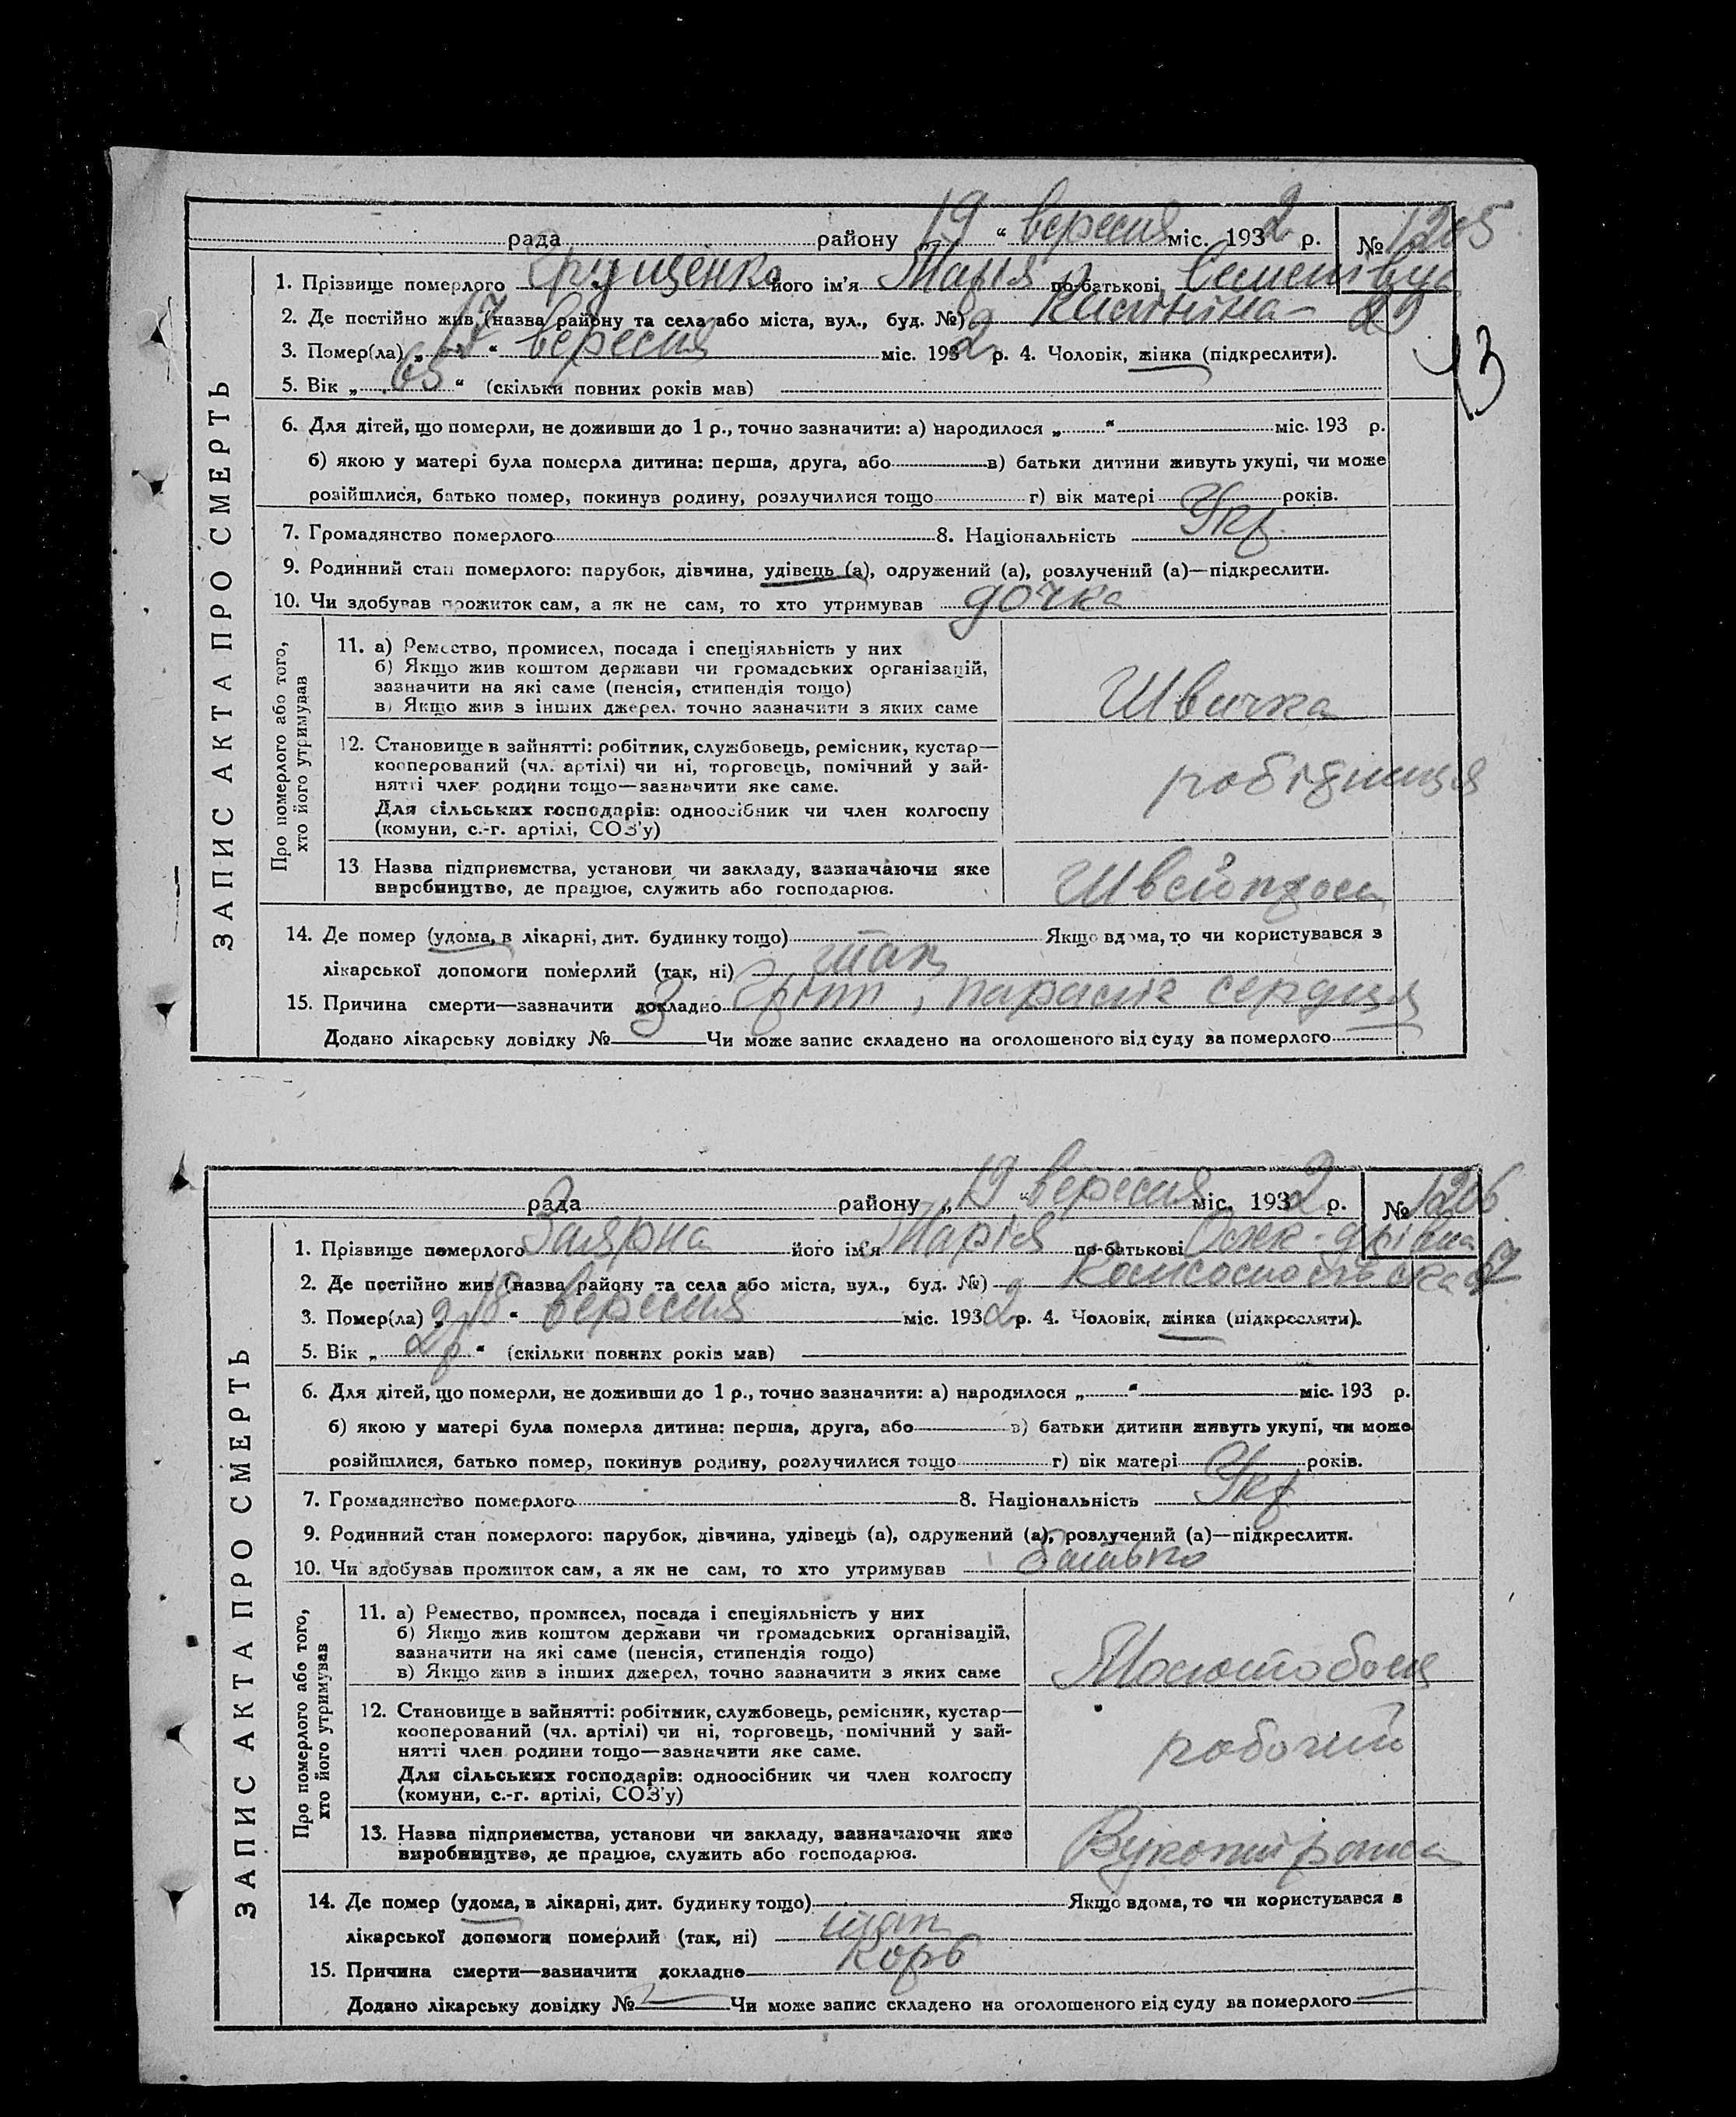 рада району „19“ вересня міс. 1932 р. № 1205
1. Прізвище померлого Грищенко його ім'я Марія по-батькові
2. Де постійно жив (назва району та села або міста, вул., буд. №) Калініна – 29
3. Помер(ла) „17“ вересня міс. 1932 р. 4. Чоловік, жінка (підкреслити).
13
5. Вік „65“ (скільки повних років мав)
6. Для дітей, що померли, не доживши до 1 р., точно зазначити: а) народилося „ “ міс. 193 р.
б) якою у матері була померла дитина: перша, друга, або в) батьки дитини живуть укупі, чи може
розійшлися, батько помер, покинув родину, розлучилися тощо г) вік матері років.
7. Громадянство померлого 8. Національність Укр
9. Родинний стан померлого: парубок, дівчина, удівець (а), одружений (а), розлучений (а)—підкреслити.
10. Чи здобував прожиток сам, а як не сам, то хто утримував дочка
ЗАПИС АКТА ПРО СМЕРТЬ
Про померлого або того,
хто його утримував
11. а) Ремество, промисел, посада і спеціяльність у них
б) Якщо жив коштом держави чи громадських організацій,
зазначити на які саме (пенсія, стипендія тощо)
в) Якщо жив з інших джерел, точно зазначити з яких саме
Швачка
12. Становище в зайнятті: робітник, службовець, ремісник, кустар—
кооперований (чл. артілі) чи ні, торговець, помічний у зай-
нятті член родини тощо—зазначити яке саме.
Для сільських господарів: одноосібник чи член колгоспу
(комуни, с.-г. артілі, СОЗ'у)
робітниця
13 Назва підприємства, установи чи закладу, зазначаючи яке
виробництво, де працює, служить або господарює.
14. Де помер (удома, в лікарні, дит. будинку тощо) Якщо вдома, то чи користувався з
лікарської допомоги померлий (так, ні) так
15. Причина смерти—зазначити докладно Гріп, параліч серця
Додано лікарську довідку № 3 Чи може запис складено на оголошеного від суду за померлого
рада району „19“ вересня міс. 1932 р. № 1206
1. Прізвище померлого Заярна його ім'я Марія по-батькові
2. Де постійно жив (назва району та села або міста, вул., буд. №) Комсомольська
3. Помер(ла) „18“ вересня міс. 1932 р. 4. Чоловік, жінка (підкреслити).
5. Вік „2р“ (скільки повних років мав)
6. Для дітей, що померли, не доживши до 1 р., точно зазначити: а) народилося „ “ міс. 193 р.
б) якою у матері була померла дитина: перша, друга, або в) батьки дитини живуть укупі, чи може
розійшлися, батько помер, покинув родину, розлучилися тощо г) вік матері років.
7. Громадянство померлого 8. Національність Укр
9. Родинний стан померлого: парубок, дівчина, удівець (а), одружений (а), розлучений (а)—підкреслити.
10. Чи здобував прожиток сам, а як не сам, то хто утримував батько
ЗАПИС АКТА ПРО СМЕРТЬ
Про померлого або того,
хто його утримував
11. а) Ремество, промисел, посада і спеціяльність у них
б) Якщо жив коштом держави чи громадських організацій,
зазначити на які саме (пенсія, стипендія тощо)
в) Якщо жив з інших джерел, точно зазначити з яких саме
Молотобоєц
12. Становище в зайнятті: робітник, службовець, ремісник, кустар—
кооперований (чл. артілі) чи ні, торговець, помічний у зай-
нятті член родини тощо—зазначити яке саме.
Для сільських господарів: одноосібник чи член колгоспу
(комуни, с.-г. артілі, СОЗ'у)
робочий
13. Назва підприємства, установи чи закладу, зазначаючи яке
виробництво, де працює, служить або господарює.
14. Де помер (удома, в лікарні, дит. будинку тощо) Якщо вдома, то чи користувався з
лікарської допомоги померлий (так, ні) так
15. Причина смерти—зазначити докладно Корь
Додано лікарську довідку № 2 Чи може запис складено на оголошеного від суду за померлого —